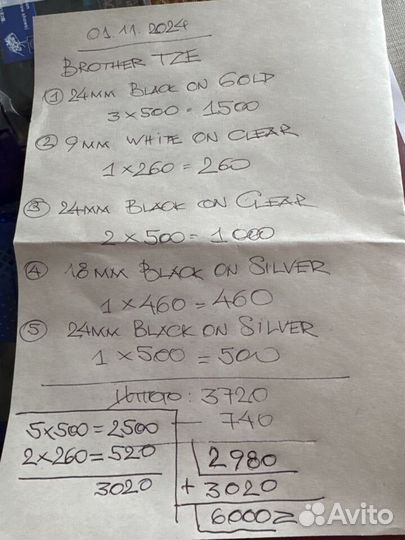 01.11.2024
BROTHER TZE
① 24MM BLACK ON GOLD
3×500=1500
② 9MM WHITE ON CLEAR
1×260=260
③ 24MM BLACK ON CLEAR
2×500=1000
④ 18MM BLACK ON SILVER
1×460=460
⑤ 24MM BLACK ON SILVER
1×500=500
Итого: 3720
- 740
5×500=2500
2×260=520
3020
2980
+ 3020
6000
Avito